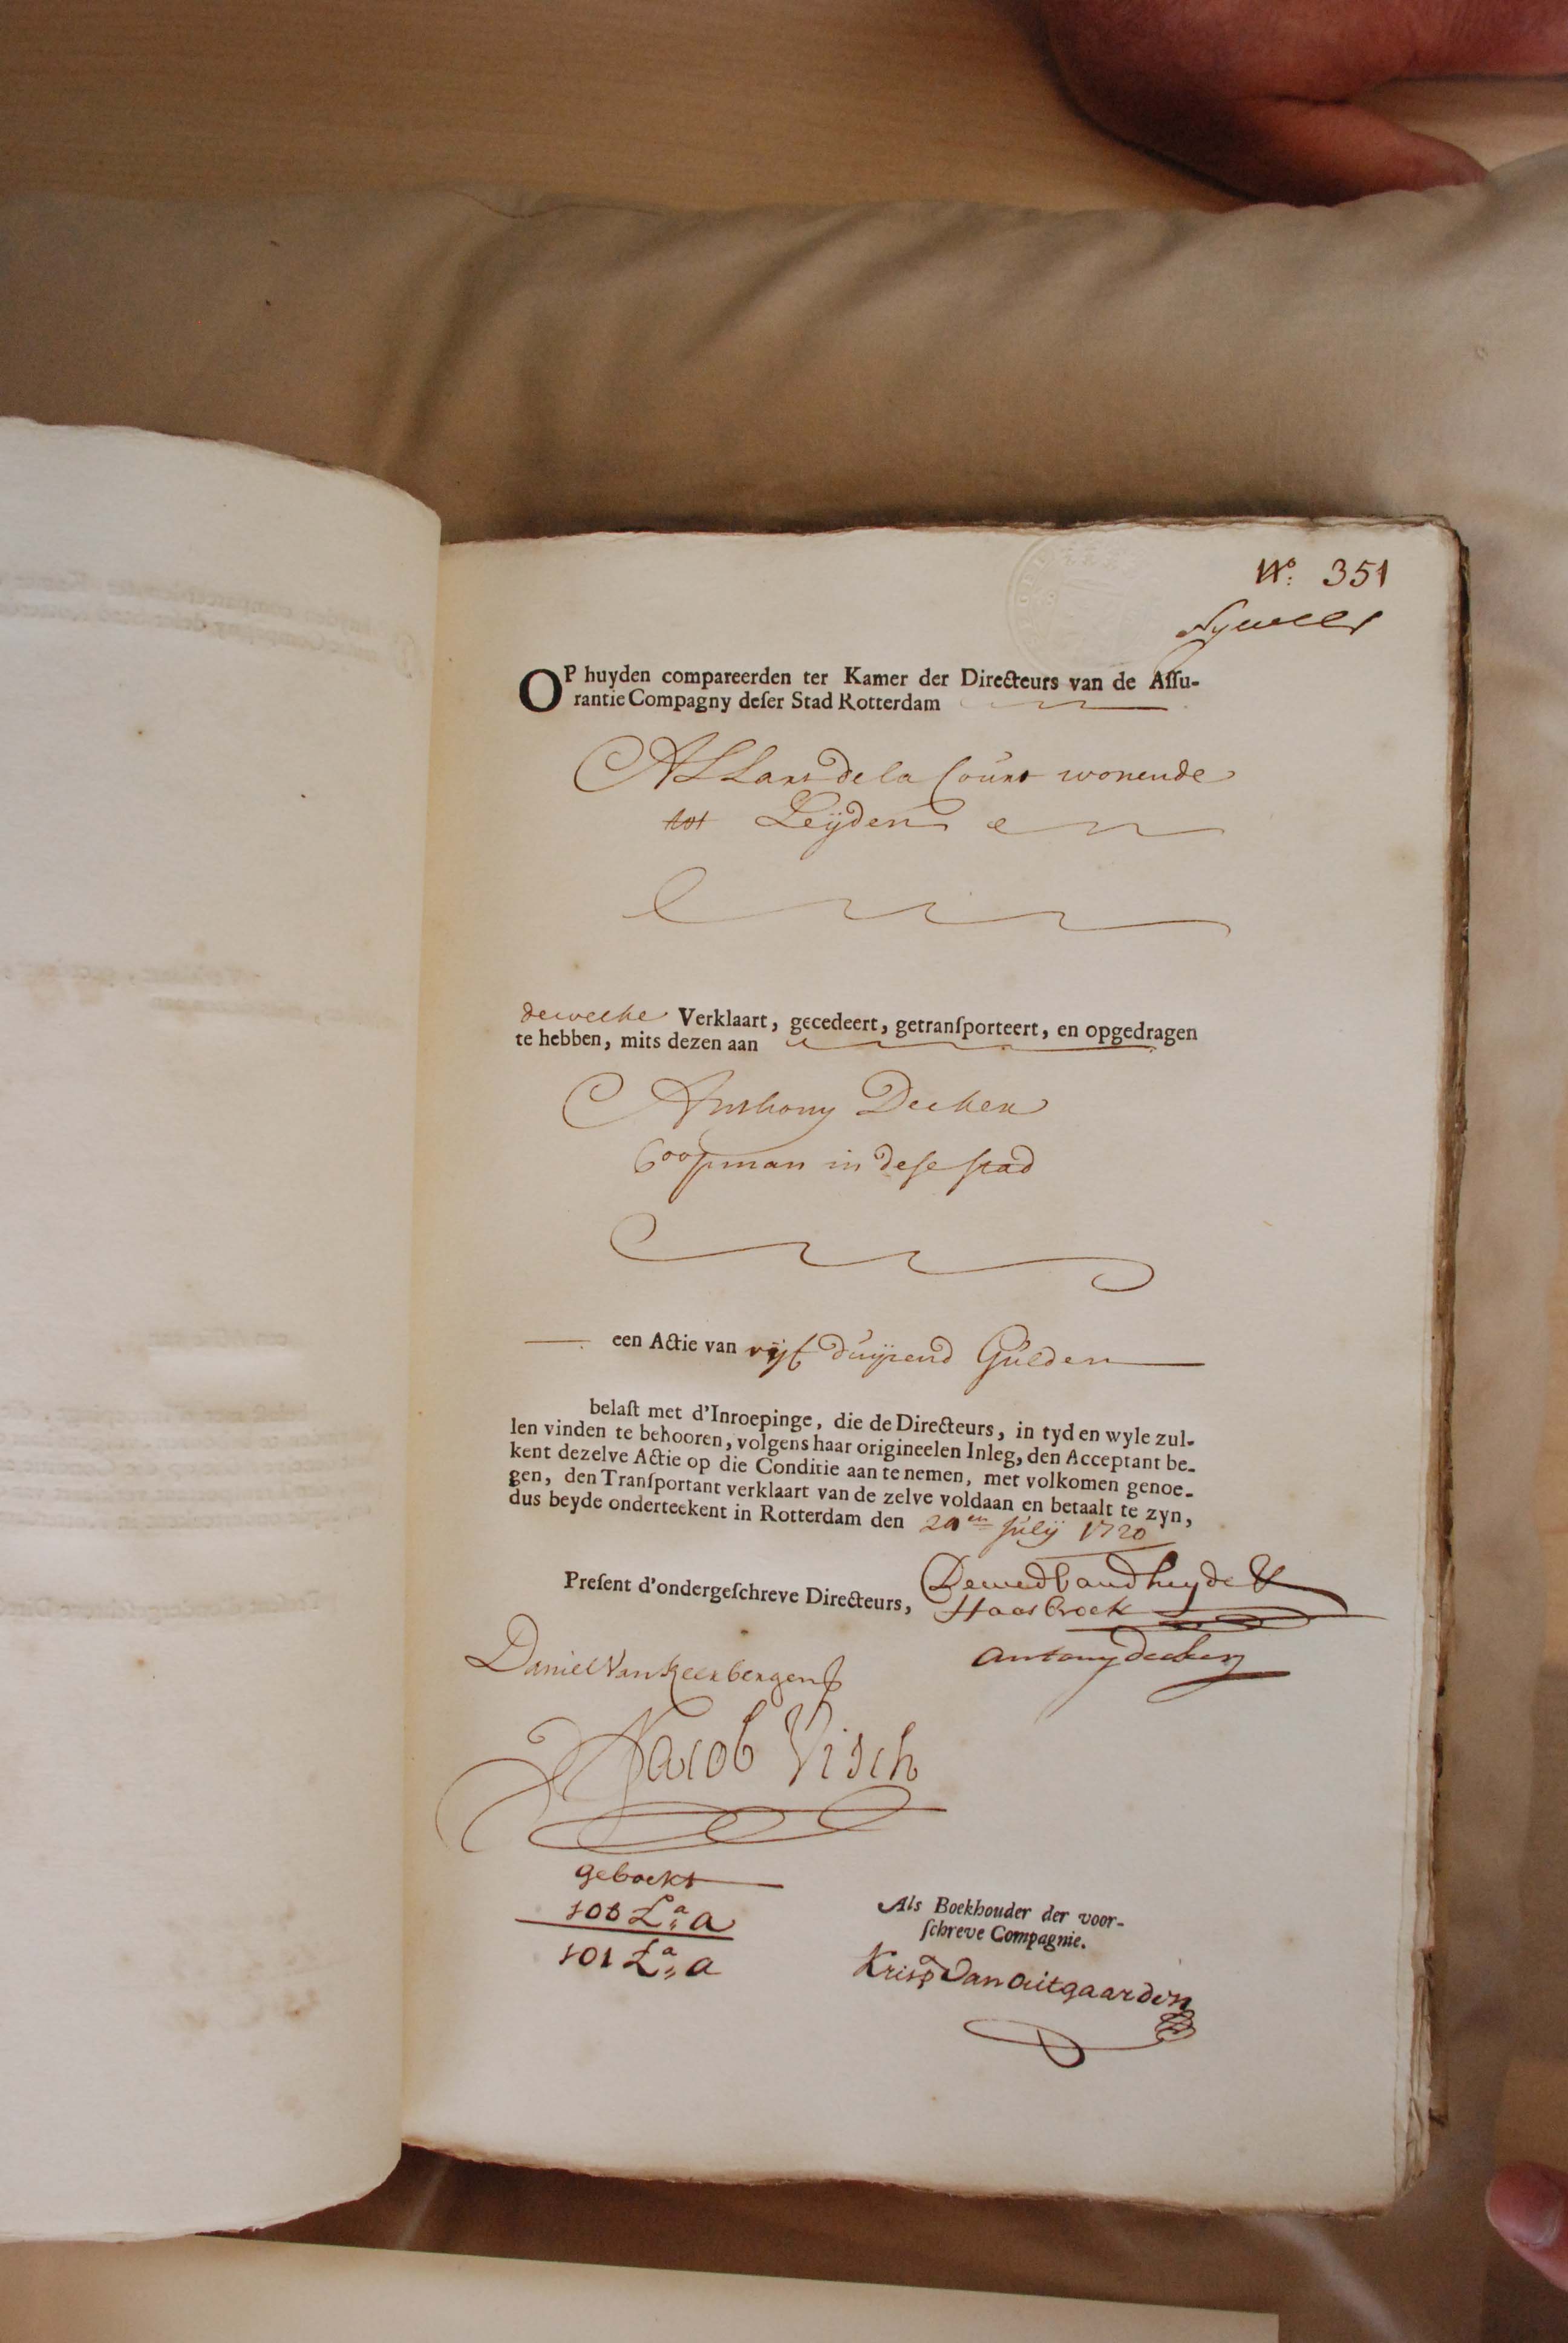 No. 351
OP huyden compareerden ter Kamer der Directeurs van de Aſſu-
rantie Compagny deſer Stad Rotterdam
Allard de la Court wonende
tot Leyden
dewelke Verklaart, gecedeert, getranſporteert, en opgedragen
te hebben, mits dezen aan
Anthony Decker
Coopman in deſe ſtad
een Actie van vijf duijsend Gulden
belaſt met d'Inroepinge, die de Directeurs, in tyd en wyle zul-
len vinden te behooren, volgens haar origineelen Inleg, den Acceptant be-
kent dezelve Actie op die Conditie aan te nemen, met volkomen genoe-
gen, den Tranſportant verklaart van de zelve voldaan en betaalt te zyn,
dus beyde onderteekent in Rotterdam den 20en Julij 1720
Preſent d'ondergeſchreve Directeurs,
Haasbroek
Daniel Van Keerbergen
Jacob Visch
geboekt
101 La: a
Als Boekhouder der voor-
ſchreve Compagnie.
Krisp Van Outgaarden